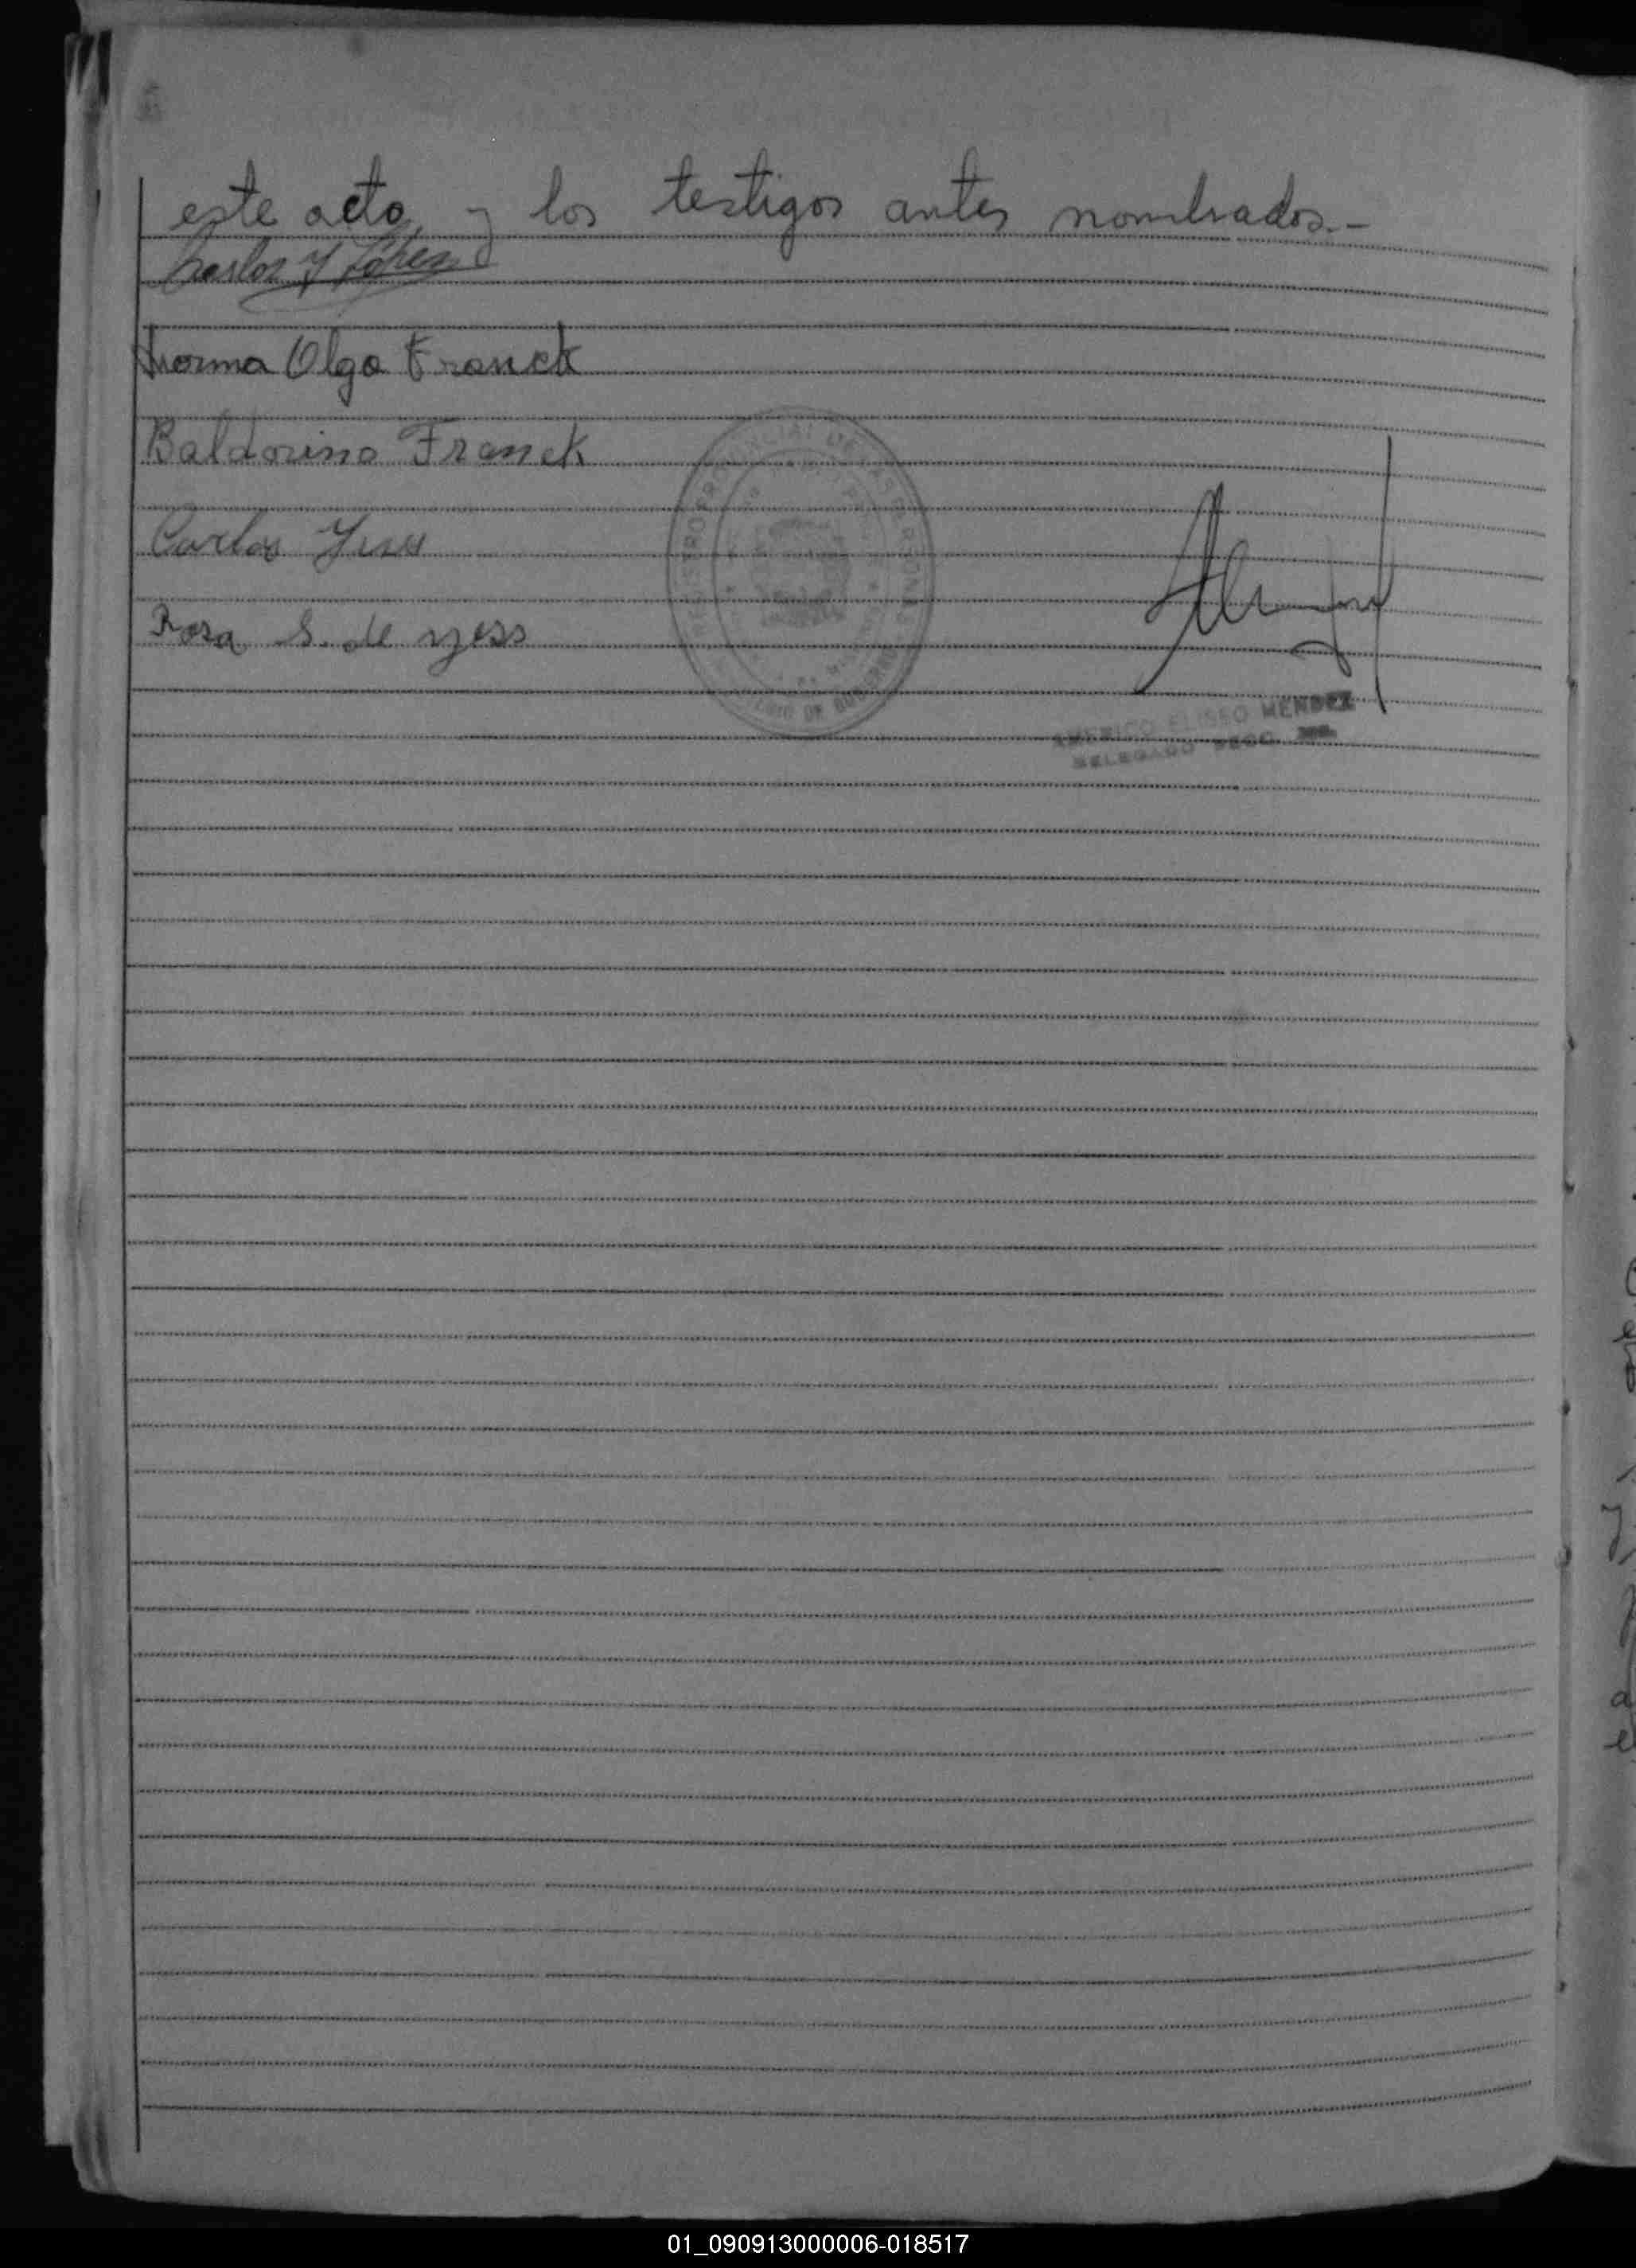 este acto, y los testigos antes nombrados.-
Carlos Y López
Norma Olga Franck
Baldovino Franck
Carlos
Rosa S. de
REGISTRO PROVINCIAL DE LAS PERSONAS
MINISTERIO DE GOBIERNO
AMERICO ELISEO MENDEZ
DELEGADO
01_090913000006-018517